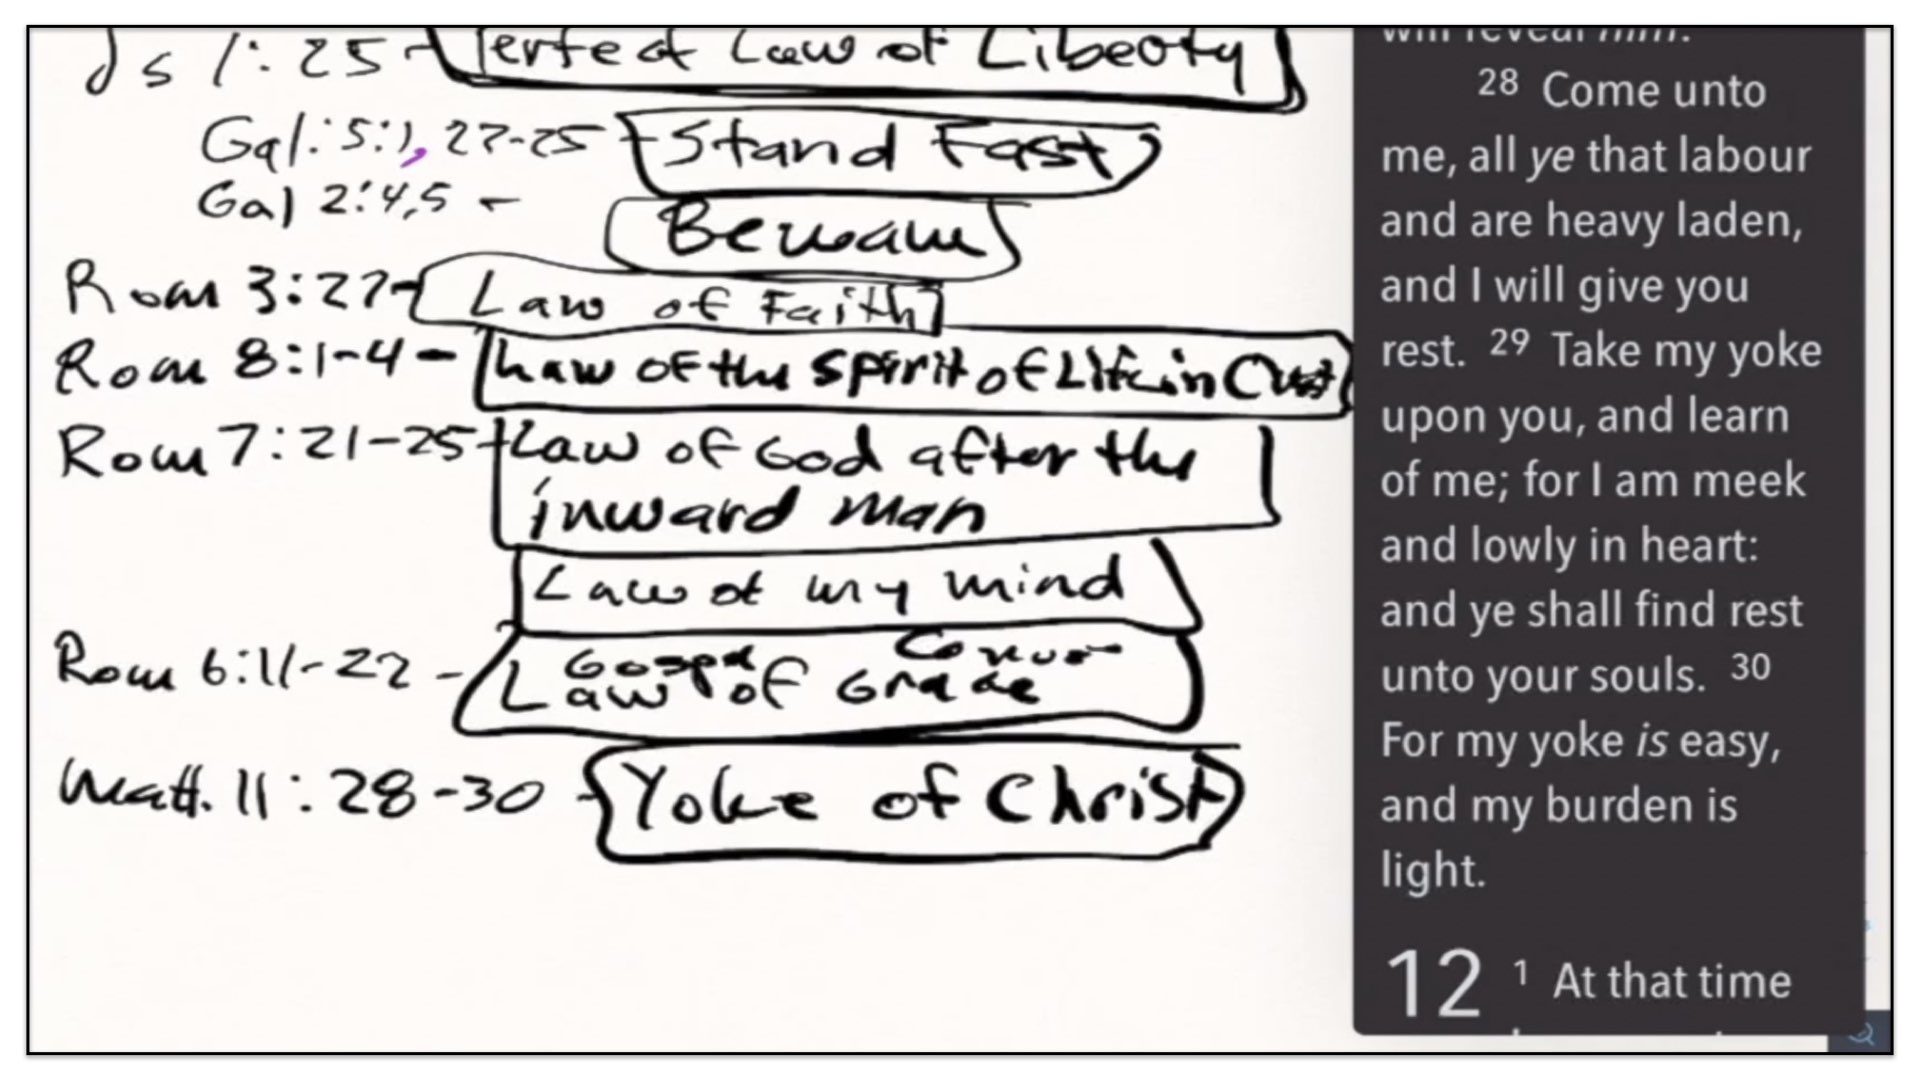 Js 1:25 - Perfect Law of Liberty
Gal. 5:1, 22-25 - Stand Fast
Gal 2:4,5 -
Beware
Rom 3:27 - Law of Faith
Rom 8:1-4 - Law of the spirit of Life in Christ
Rom 7:21-25 - Law of God after the
inward man
Law of my mind
Gospel
Rom 6:11-22 - Law of Grace
Matt. 11:28-30 - Yoke of Christ
will reveal him.
28 Come unto
me, all ye that labour
and are heavy laden,
and I will give you
rest. 29 Take my yoke
upon you, and learn
of me; for I am meek
and lowly in heart:
and ye shall find rest
unto your souls. 30
For my yoke is easy,
and my burden is
light.
12 1 At that time